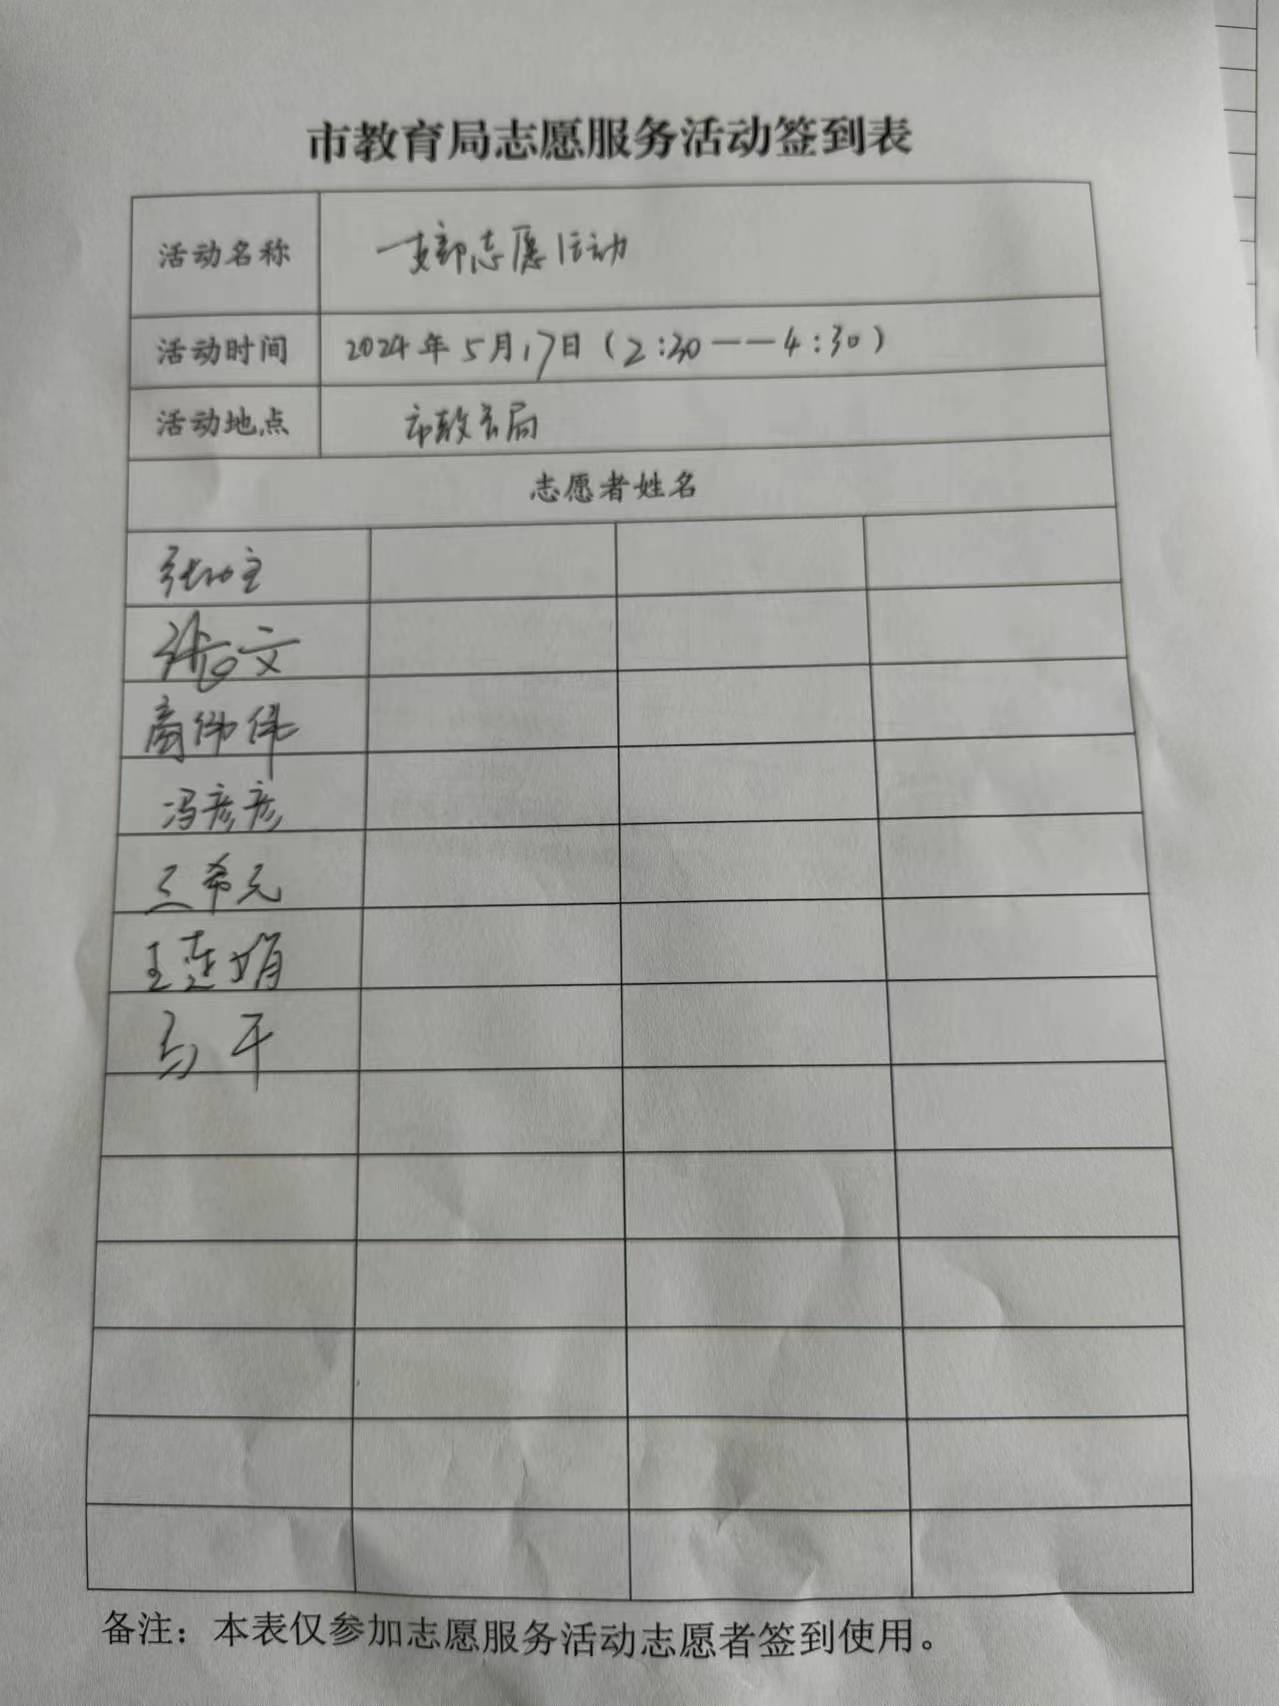 市教育局志愿服务活动签到表
活动名称 一支部志愿活动
活动时间 2024年5月17日(2:30——4:30)
活动地点 市教育局
志愿者姓名
文
高伟伟
冯彦彦
王希元
王莲娟
备注：本表仅参加志愿服务活动志愿者签到使用。